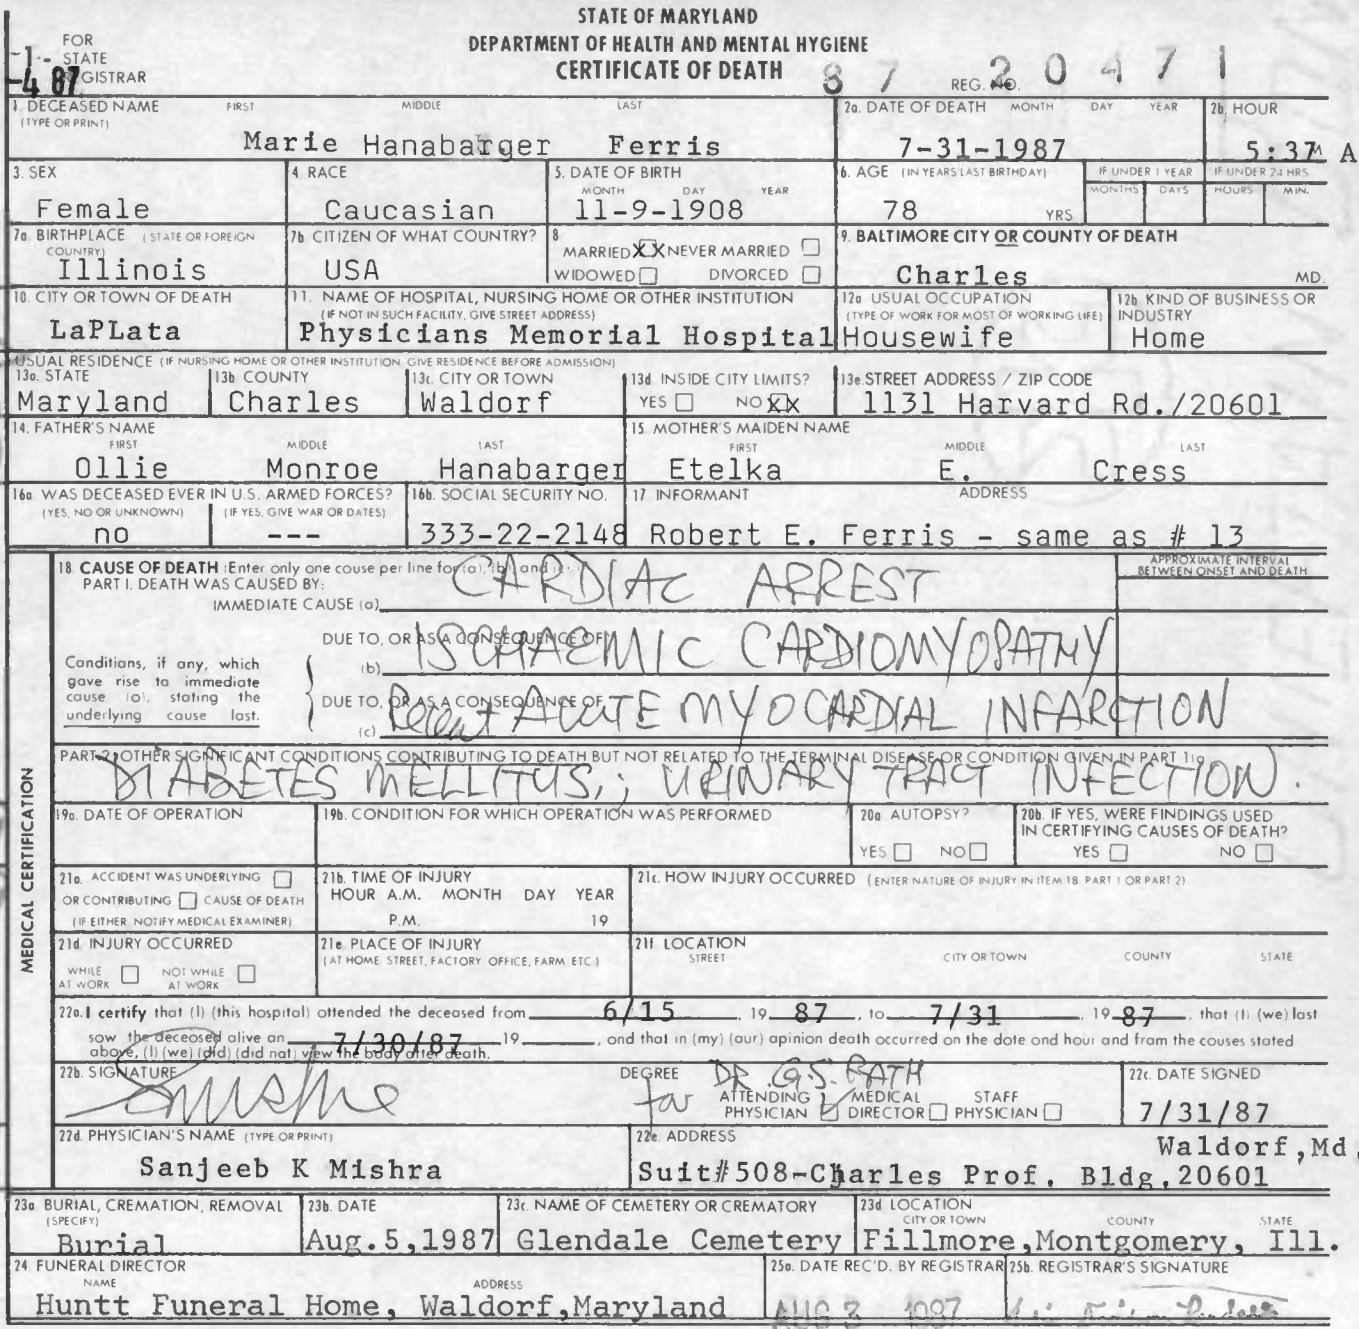 STATE OF MARYLAND
DEPARTMENT OF HEALTH AND MENTAL HYGIENE
CERTIFICATE OF DEATH
FOR
STATE
REGISTRAR
87 REG. NO. 20471
1. DECEASED NAME FIRST MIDDLE LAST
(TYPE OR PRINT)
Marie Hanabarger Ferris
2a. DATE OF DEATH MONTH DAY YEAR
7-31-1987
2b. HOUR
5:37 A M
3. SEX
Female
4. RACE
Caucasian
5. DATE OF BIRTH
MONTH DAY YEAR
11-9-1908
6. AGE (IN YEARS LAST BIRTHDAY)
78 YRS
IF UNDER 1 YEAR
MONTHS DAYS
IF UNDER 24 HRS
HOURS MIN.
7a. BIRTHPLACE (STATE OR FOREIGN
COUNTRY)
Illinois
7b. CITIZEN OF WHAT COUNTRY?
USA
8
MARRIED XX NEVER MARRIED
WIDOWED DIVORCED
9. BALTIMORE CITY OR COUNTY OF DEATH
Charles MD.
10. CITY OR TOWN OF DEATH
LaPLata
11. NAME OF HOSPITAL, NURSING HOME OR OTHER INSTITUTION
(IF NOT IN SUCH FACILITY, GIVE STREET ADDRESS)
Physicians Memorial Hospital
12a USUAL OCCUPATION
(TYPE OF WORK FOR MOST OF WORKING LIFE)
Housewife
12b KIND OF BUSINESS OR
INDUSTRY
Home
USUAL RESIDENCE (IF NURSING HOME OR OTHER INSTITUTION GIVE RESIDENCE BEFORE ADMISSION)
13a. STATE
Maryland
13b COUNTY
Charles
13c. CITY OR TOWN
Waldorf
13d INSIDE CITY LIMITS?
YES NO XX
13e. STREET ADDRESS / ZIP CODE
1131 Harvard Rd./20601
14. FATHER'S NAME
FIRST MIDDLE LAST
Ollie Monroe Hanabarger
15 MOTHER'S MAIDEN NAME
FIRST MIDDLE LAST
Etelka E. Cress
16a WAS DECEASED EVER IN U.S. ARMED FORCES?
(YES, NO OR UNKNOWN) (IF YES, GIVE WAR OR DATES)
no ---
16b. SOCIAL SECURITY NO.
333-22-2148
17 INFORMANT ADDRESS
Robert E. Ferris - same as # 13
MEDICAL CERTIFICATION
18 CAUSE OF DEATH (Enter only one cause per line for (a), (b), and (c).
PART I. DEATH WAS CAUSED BY:
IMMEDIATE CAUSE (a) CARDIAC ARREST
APPROXIMATE INTERVAL
BETWEEN ONSET AND DEATH
Conditions, if any, which
gave rise to immediate
cause (a), stating the
underlying cause last.
DUE TO, OR AS A CONSEQUENCE OF
(b) ISCHAEMIC CARDIOMYOPATHY
DUE TO, OR AS A CONSEQUENCE OF
(c) Recent ACUTE MYOCARDIAL INFARCTION
PART 2 OTHER SIGNIFICANT CONDITIONS CONTRIBUTING TO DEATH BUT NOT RELATED TO THE TERMINAL DISEASE OR CONDITION GIVEN IN PART 1(a)
DIABETES MELLITUS,; URINARY TRACT INFECTION.
19a. DATE OF OPERATION
19b. CONDITION FOR WHICH OPERATION WAS PERFORMED
20a AUTOPSY?
YES NO
20b. IF YES, WERE FINDINGS USED
IN CERTIFYING CAUSES OF DEATH?
YES NO
21a. ACCIDENT WAS UNDERLYING
OR CONTRIBUTING CAUSE OF DEATH
(IF EITHER, NOTIFY MEDICAL EXAMINER)
21b. TIME OF INJURY
HOUR A.M. MONTH DAY YEAR
P.M. 19
21c. HOW INJURY OCCURRED (ENTER NATURE OF INJURY IN ITEM 18 PART 1 OR PART 2)
21d INJURY OCCURRED
WHILE AT WORK NOT WHILE AT WORK
21e PLACE OF INJURY
(AT HOME STREET, FACTORY OFFICE, FARM ETC)
21f LOCATION
STREET CITY OR TOWN COUNTY STATE
22a. I certify that (I) (this hospital) attended the deceased from 6/15 19 87, to 7/31, 19 87, that (I) (we) last
saw the deceased alive on 7/30/87 19, and that in (my) (our) opinion death occurred on the date and hour and from the causes stated
above, (I) (we) (did) (did not) view the body after death.
22b. SIGNATURE
DEGREE
for DR. G.S. RATH
ATTENDING PHYSICIAN MEDICAL DIRECTOR STAFF PHYSICIAN
22c. DATE SIGNED
7/31/87
22d. PHYSICIAN'S NAME (TYPE OR PRINT)
Sanjeeb K Mishra
22e. ADDRESS
Waldorf,Md.
Suit#508-Charles Prof. Bldg.20601
23a BURIAL, CREMATION, REMOVAL
(SPECIFY)
Burial
23b. DATE
Aug.5,1987
23c. NAME OF CEMETERY OR CREMATORY
Glendale Cemetery
23d LOCATION
CITY OR TOWN COUNTY STATE
Fillmore,Montgomery, Ill.
24 FUNERAL DIRECTOR
NAME ADDRESS
Huntt Funeral Home, Waldorf,Maryland
25a. DATE REC'D. BY REGISTRAR
AUG 3 1987
25b. REGISTRAR'S SIGNATURE